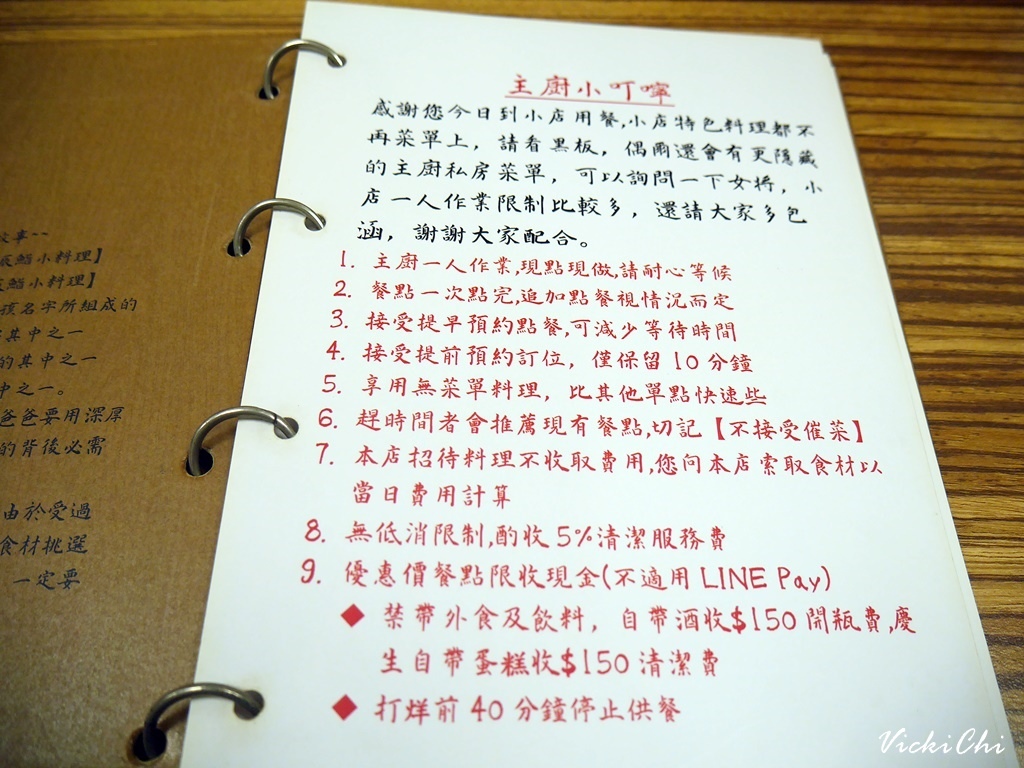 主廚小叮嚀
感謝您今日到小店用餐,小店特色料理都不
再菜單上，請看黑板，偶爾還會有更隱藏
的主廚私房菜單，可以詢問一下女將，小
店一人作業限制比較多，還請大家多包
涵，謝謝大家配合。
1. 主廚一人作業,現點現做,請耐心等候
2. 餐點一次點完,追加點餐視情況而定
3. 接受提早預約點餐,可減少等待時間
4. 接受提前預約訂位，僅保留10分鐘
5. 享用無菜單料理，比其他單點快速些
6. 趕時間者會推薦現有餐點,切記【不接受催菜】
7. 本店招待料理不收取費用,您向本店索取食材以
當日費用計算
8. 無低消限制,酌收5%清潔服務費
9. 優惠價餐點限收現金(不適用LINE Pay)
◆ 禁帶外食及飲料，自帶酒收$150開瓶費,慶
生自帶蛋糕收$150清潔費
◆ 打烊前40分鐘停止供餐
故事--
小料理】
小料理】
孩名字所組成的
其中之一
的其中之一
中之一。
爸爸要用深厚
的背後必需
由於受過
食材挑選
一定要
VickiChi